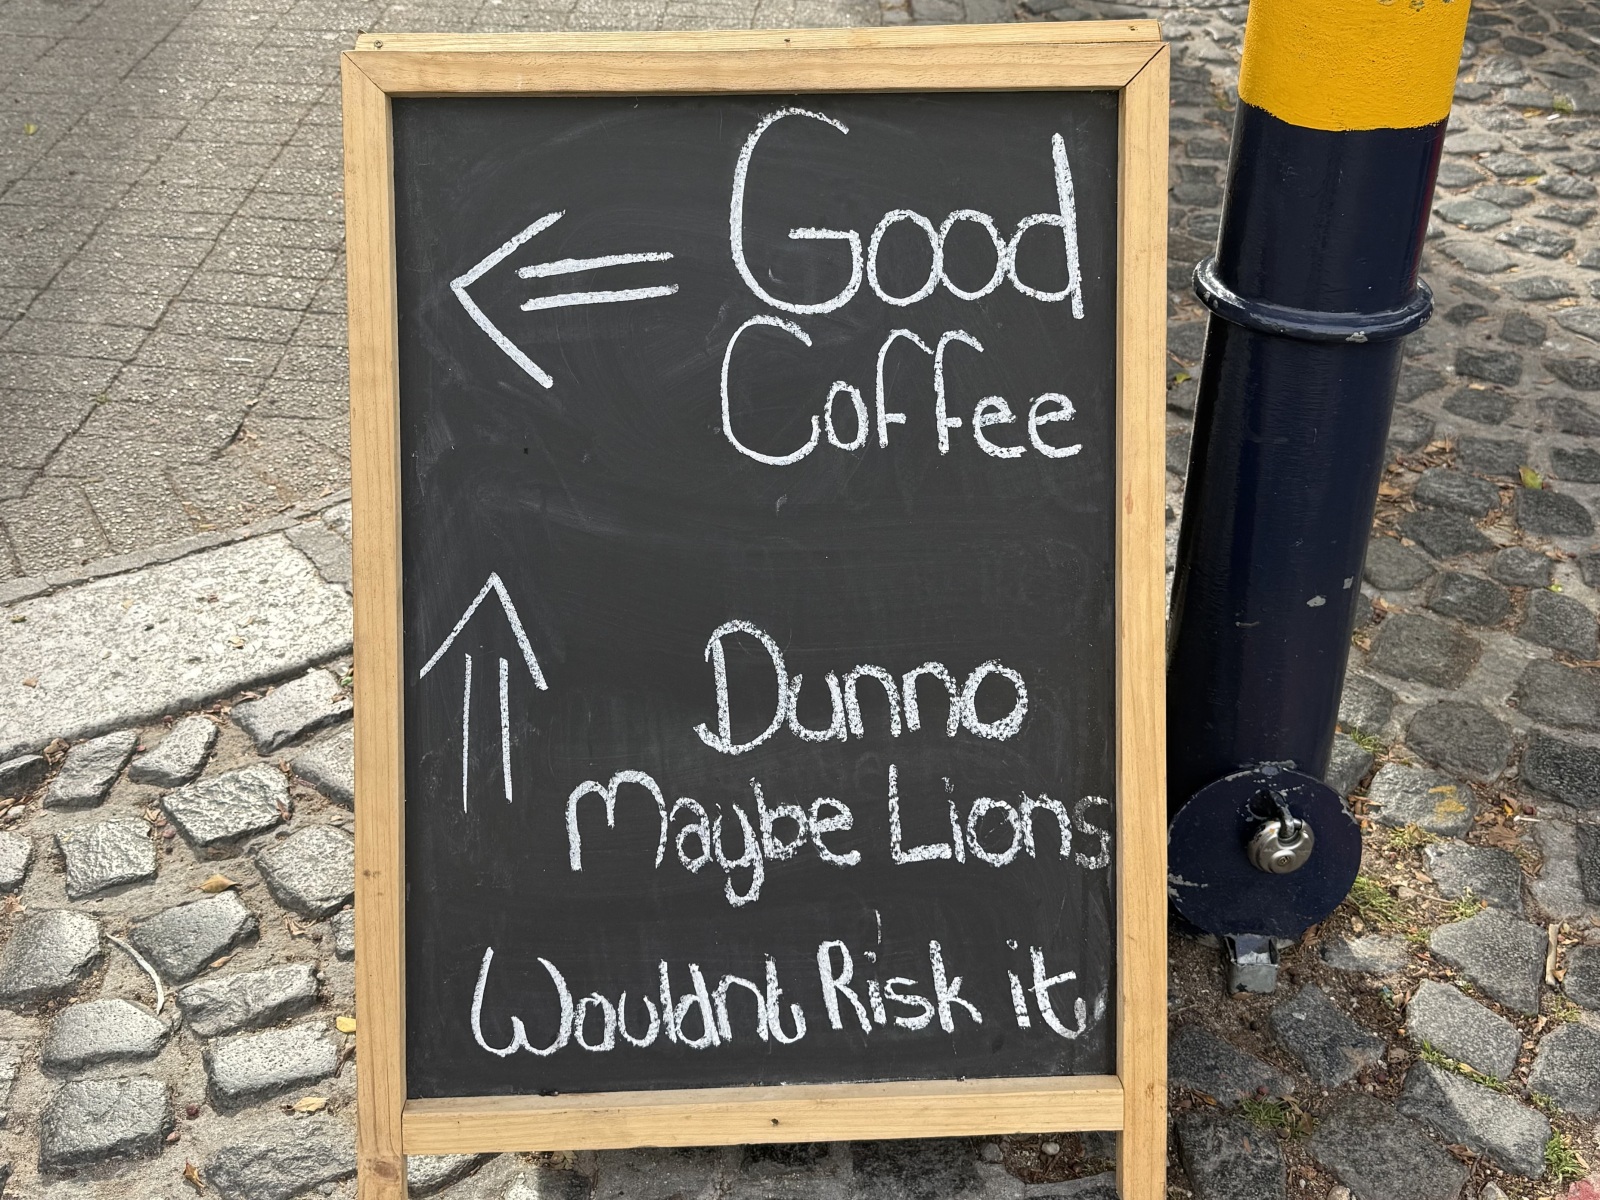 Good
Coffee
Dunno
Maybe Lions
Wouldnt Risk it